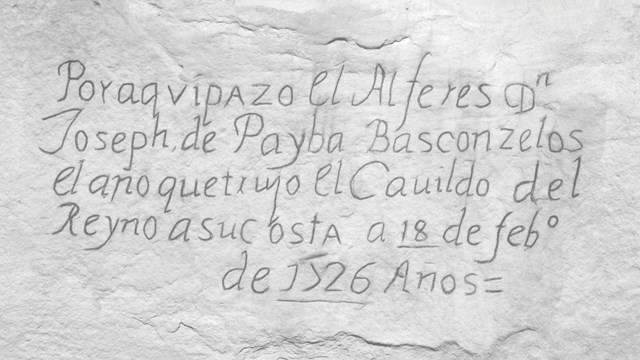 Por aqvi pAZO el Alferes Dⁿ
Joseph de Payba Basconzelos
el año que trujo el Cauildo del
Reyno a su costA a 18 de febº
de 1726 Años=